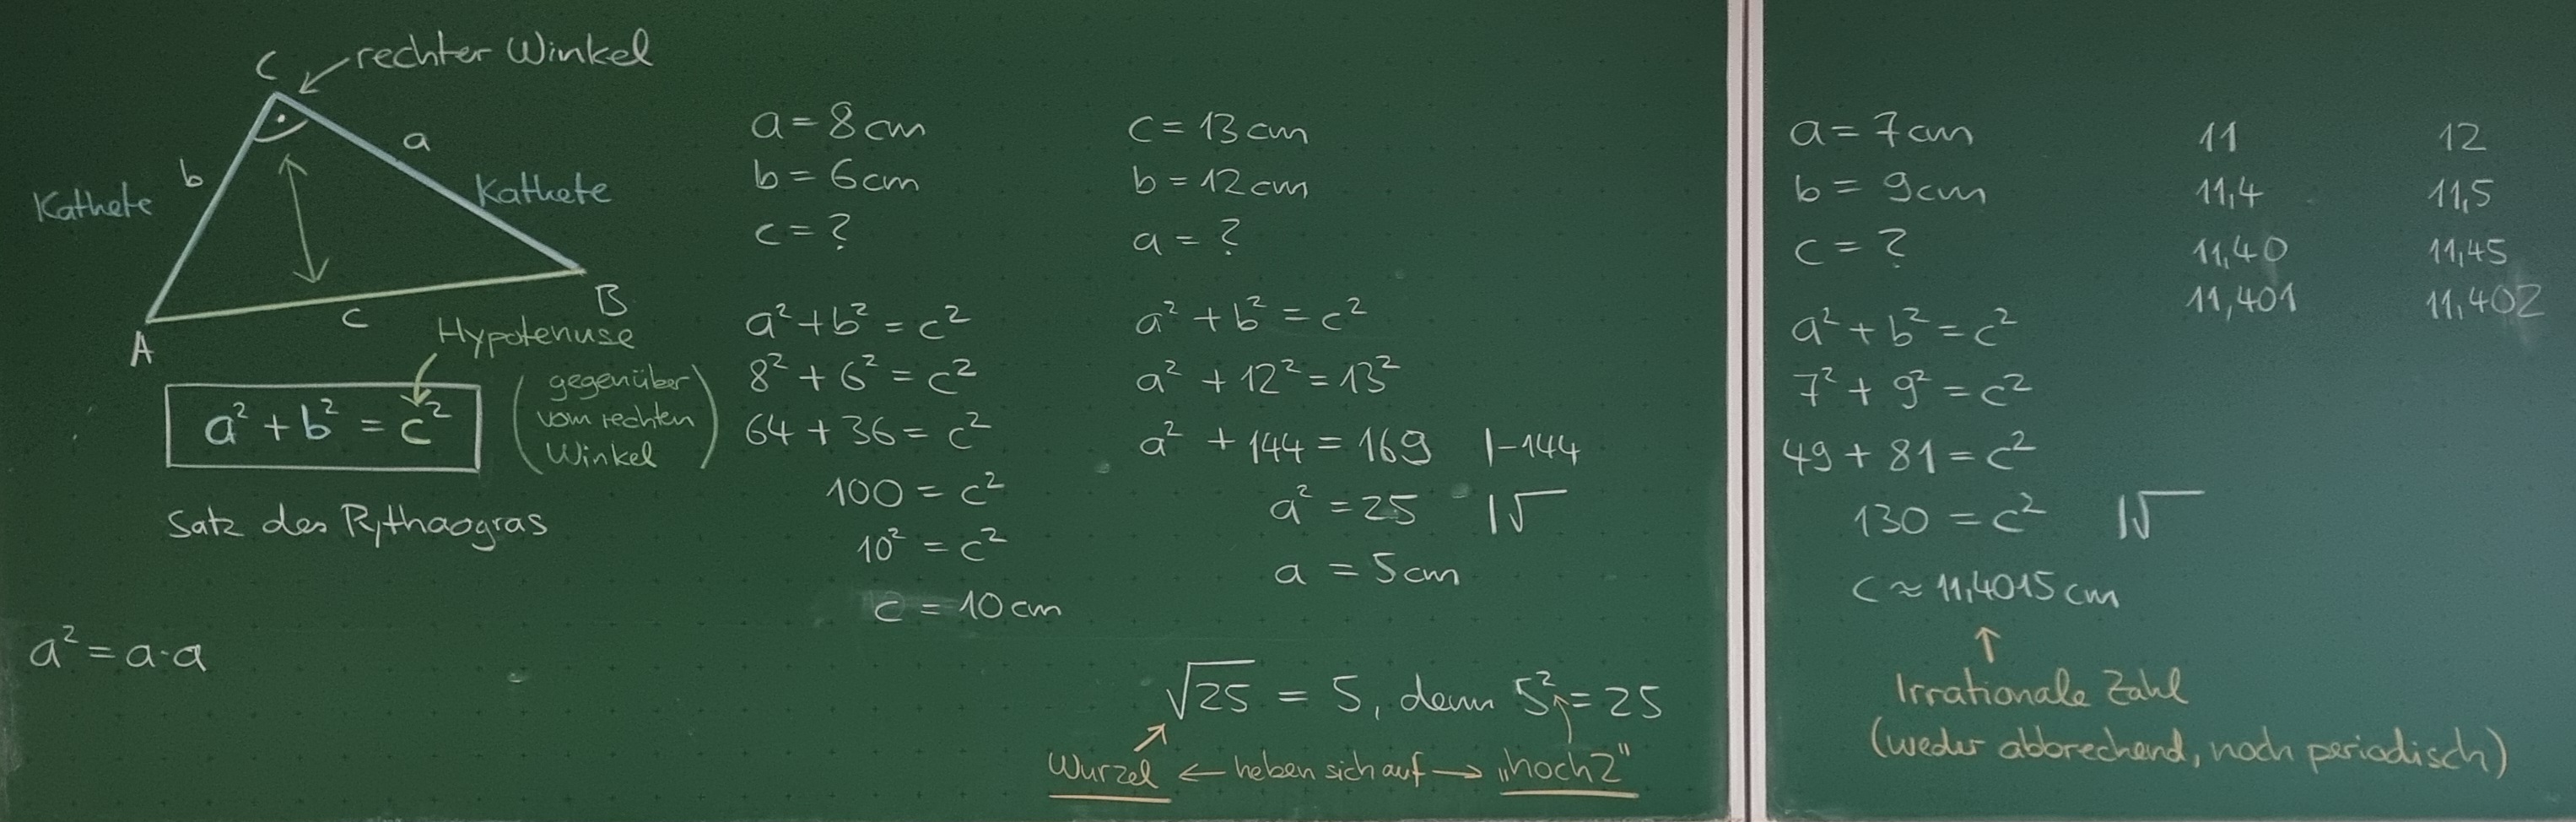 C
rechter Winkel
b
a
Kathete
Kathete
A
c
B
Hypotenuse
(gegenüber
vom rechten
Winkel)
a² + b² = c²
Satz des Pythaogras
a² = a·a
a = 8cm
b = 6cm
c = ?
a² + b² = c²
8² + 6² = c²
64 + 36 = c²
100 = c²
10² = c²
c = 10cm
c = 13cm
b = 12cm
a = ?
a² + b² = c²
a² + 12² = 13²
a² + 144 = 169 |-144
a² = 25 |√
a = 5cm
√25 = 5, denn 5² = 25
Wurzel ← heben sich auf → „hoch 2"
a = 7cm
b = 9cm
c = ?
a² + b² = c²
7² + 9² = c²
49 + 81 = c²
130 = c² |√
c ≈ 11,4015cm
↑
Irrationale Zahl
(weder abbrechend, noch periodisch)
11 12
11,4 11,5
11,40 11,45
11,401 11,402